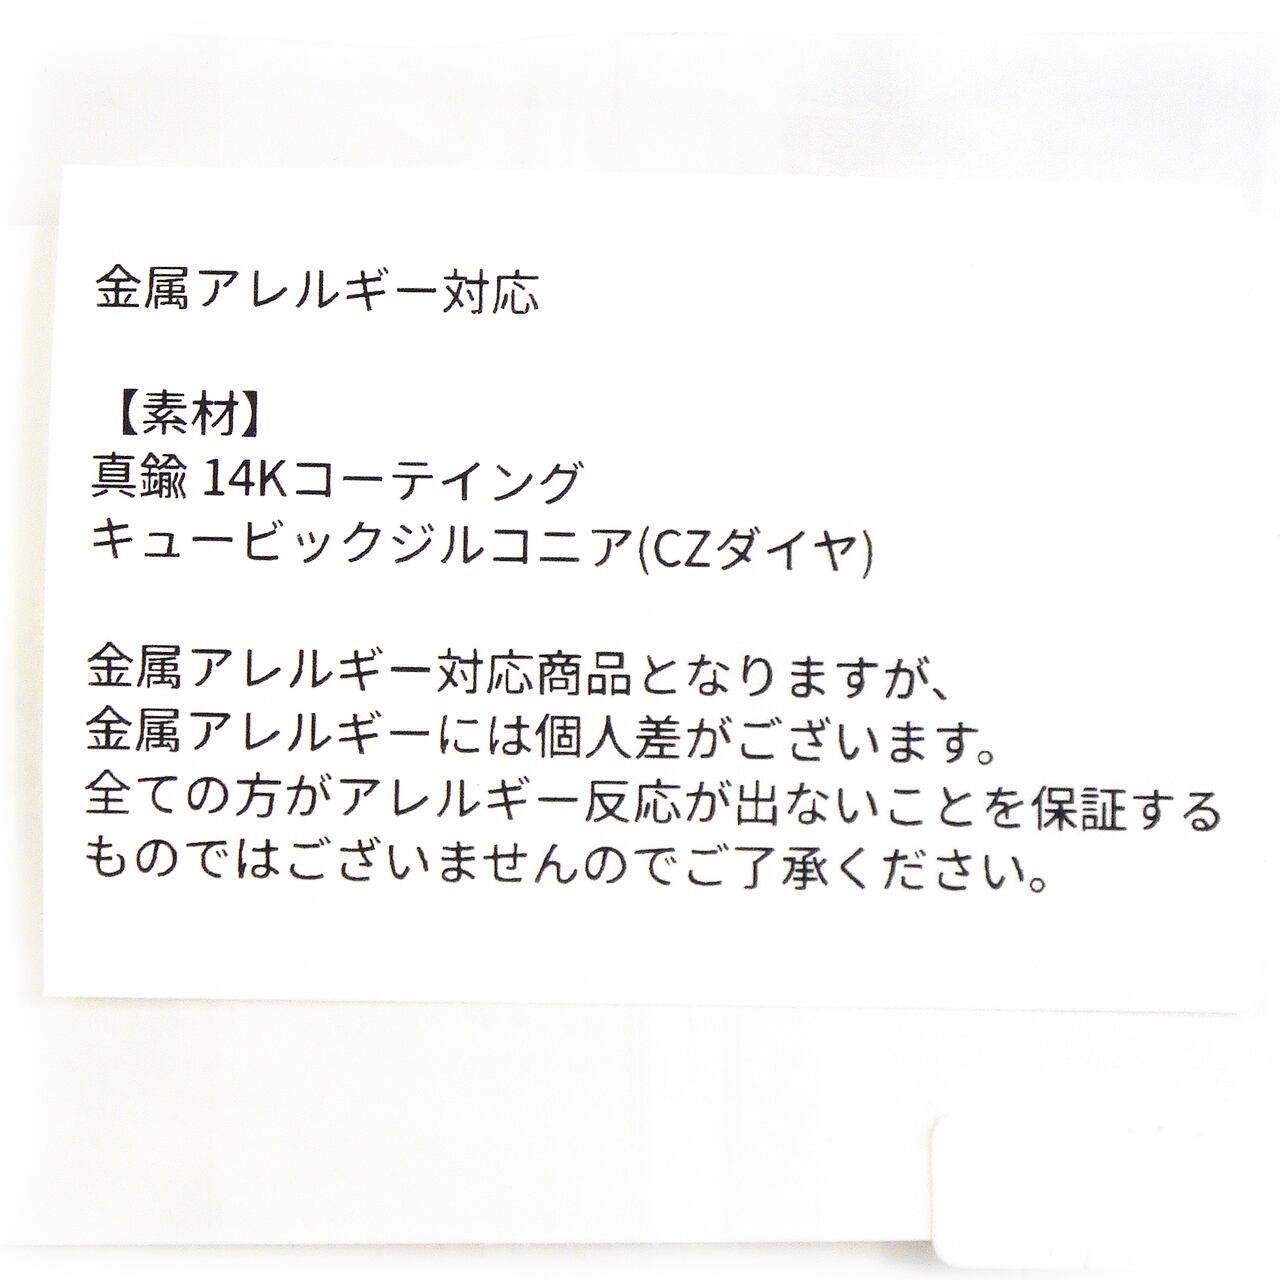 金属アレルギー対応
【素材】
真鍮 14Kコーテイング
キュービックジルコニア(CZダイヤ)
金属アレルギー対応商品となりますが、
金属アレルギーには個人差がございます。
全ての方がアレルギー反応が出ないことを保証する
ものではございませんのでご了承ください。